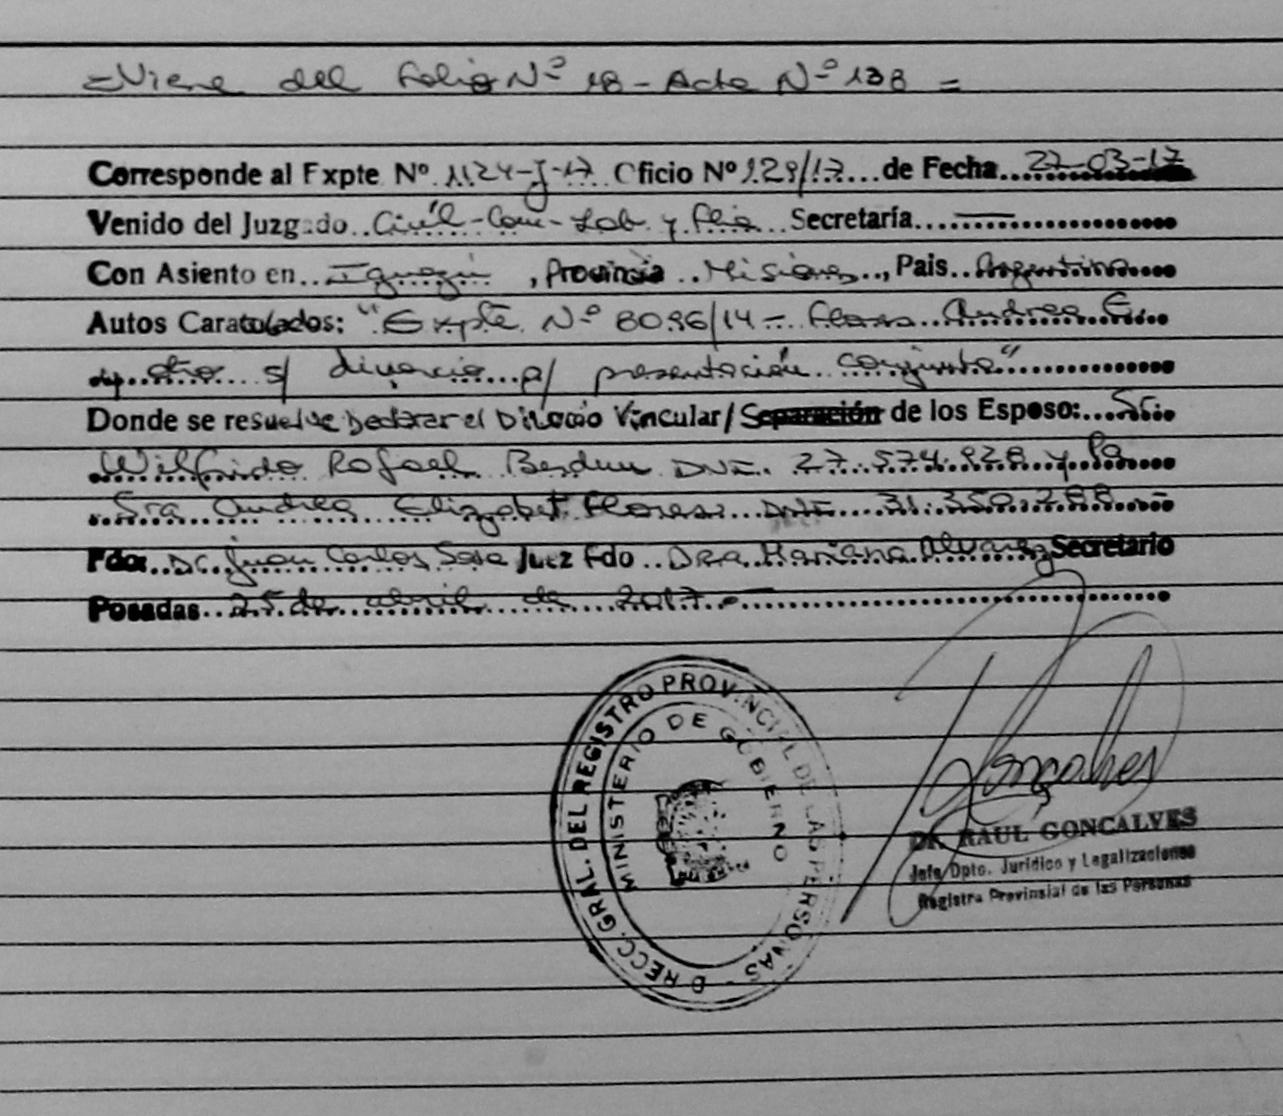 =Viene del Folio Nº 18 - Acta Nº 138 =
Corresponde al Expte Nº 1124-J-17 Oficio Nº 129/17 de Fecha 27-03-17
Venido del Juzgado Civil-Com-Lab y Flia Secretaría
Con Asiento en Iguazú, Provincia Misiones, Pais Argentina
Autos Caratulados: "Expte Nº 8096/14 - Flores Andrea E.
y otro s/ divorcio p/ presentación conjunta"
Donde se resuelve Declarar el Divorcio Vincular/Separación de los Esposo: Sr.
Wilfrido Rafael Berdun DNI. 27.574.928 y la
Sra Andrea Elizabet Flores DNI 31.350.288
Fdo: Dr. Juan Carlos Sosa Juez Fdo Dra Mariana Alvarez Secretario
Posadas 25 de abril de 2017
DIRECC. GRAL. DEL REGISTRO PROVINCIAL DE LAS PERSONAS
MINISTERIO DE GOBIERNO
Gonçalves
Dr. RAUL GONCALVES
Jefe Dpto. Jurídico y Legalizaciones
Registro Provinsial de las Personas